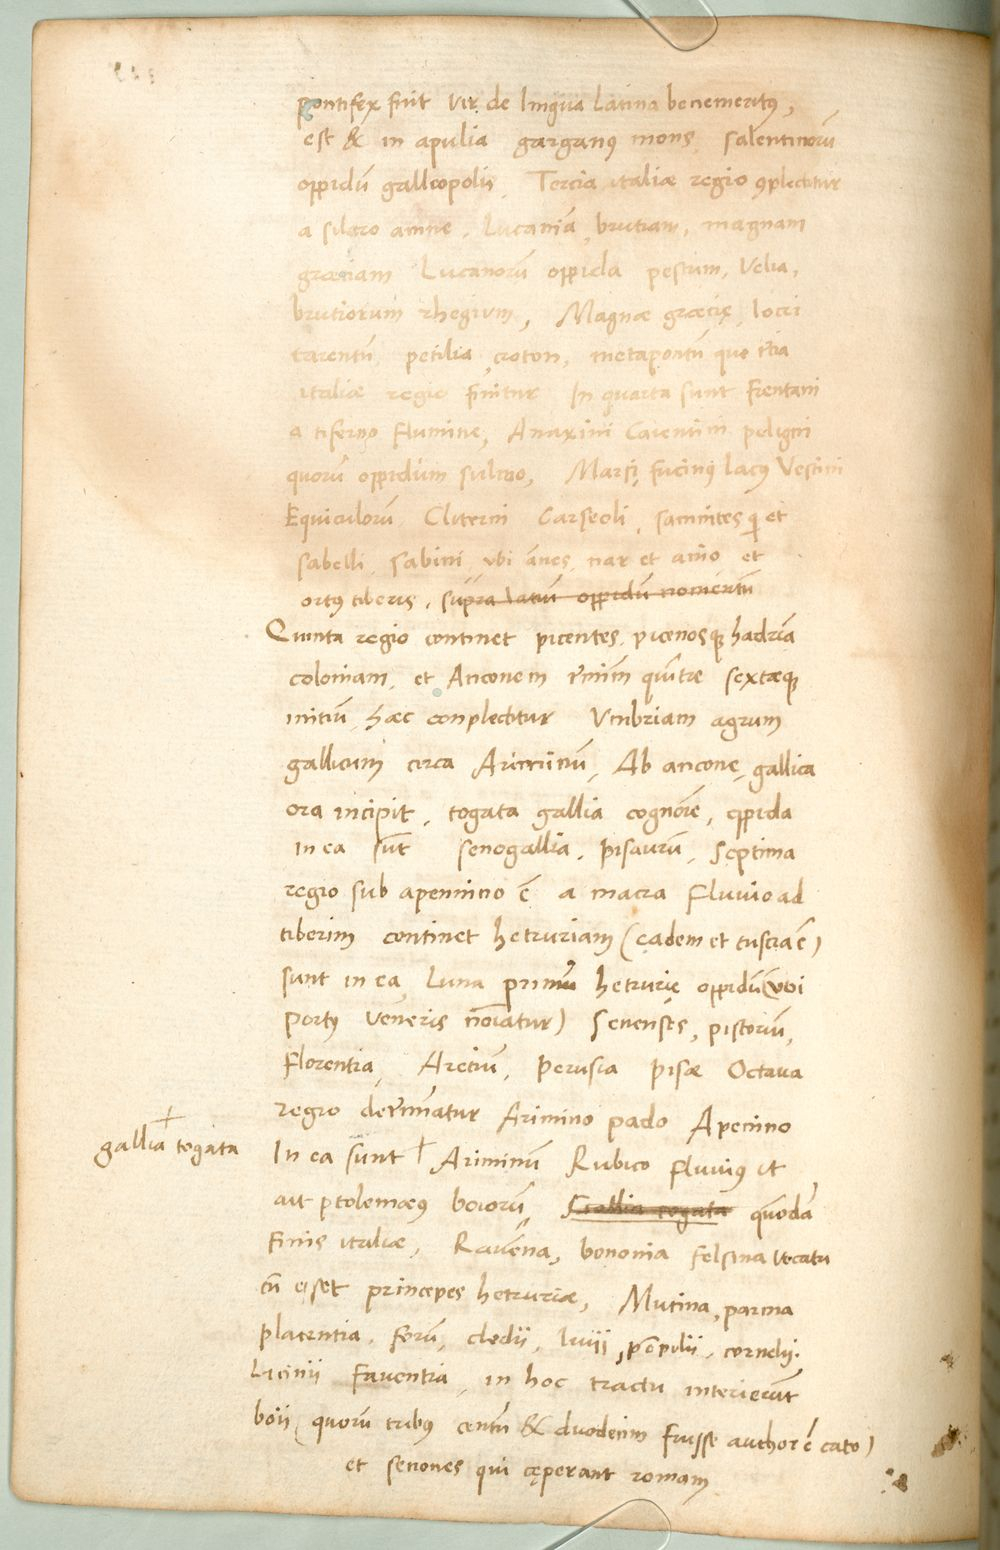 pontifex fuit vir de lingua Latina benemeritꝰ,
est & in apulia garganꝰ mons, salentinorũ
oppidũ galleopolis, Tercia italiæ regio ꝯplectitur
a silaro amne, Lucaniã, brutiam, magnam
græciam Lucanorũ oppida pestum, Velia,
brutiorum rhegium, Magnæ græcię, locri
tarentũ, petilia, croton, metapontũ quo
italiæ regio finitur In quarta sunt frentani
a tiferno flumine, Anaxini Carentini peligni
quorũ oppidum sulmo, Marsi, fucinꝰ lacꝰ Vestini
Equiculorũ Cliterni Carseoli, samnites q et
sabelli, sabini, vbi ãnes, nar et anio et
ortꝰ tiberis, supra latiũ oppidũ nomentũ
Quinta regio continet picentes, picenosqꝫ hadriã
coloniam, et Anconem quĩtæ sextæqꝫ
initiũ, hæc conplectitur Vmbriam agrum
gallicum circa Ariminũ, Ab ancone, gallica
ora incipit, togata gallia cognõie, oppida
in ea sũt senogallia, pisaurũ, Septima
regio sub apennino ẽ a macra fluuio ad
tiberim continet hetruriam (eadem et tuscia ẽ)
sunt in ea, Luna primũ hetrurię oppidũ (vbi
portꝰ Veneris nõiatur) Senenses, pistoriũ,
florentia, Aretiũ, perusia pisæ Octaua
regio determinatur Arimino pado Apenino
In ea sunt † Ariminũ Rubico fluuiꝰ vt
ait ptolemæꝰ boiorũ, Gallia togata quõdã
finis italiæ, Rauẽna, bononia felsina vocata
cũ esset princepes hetruriæ, Mutina, parma
placentia, forũ, clodii, liuii, põpilii, cornelij.
Licinii fauentia, in hoc tractu interierũt
boii (quorũ tribꝰ centũ & duodecim fuisse author ẽ cato)
et senones qui cęperant romam
† gallia togata